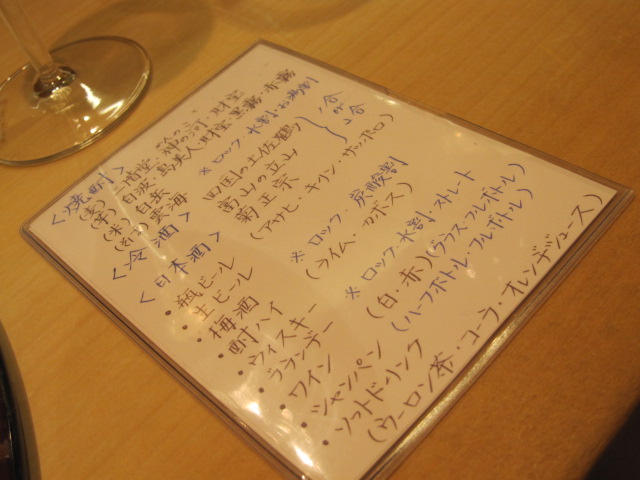 <焼酎>
(麦) 二階堂・神の河・財宝
(芋) 白波・島美人・財宝・黒霧・赤霧
(米) 白岳
(そば) 雲海
※ロック・水割・お湯割
<冷酒>
田国の土佐鶴
富山の立山
菊正宗
一合
or
二合
<日本酒>
・瓶ビール (アサヒ・キリン・サッポロ)
・生ビール
・梅酒 ※ロック・炭酸割
・酎ハイ (ライム・カボス)
・ウィスキー ※ロック・水割・ストレート
・ブランデー
・ワイン (白・赤) (グラス・フルボトル)
・シャンパン (ハーフボトル・フルボトル)
・ソフトドリンク
(ウーロン茶・コーラ・オレンヂジュース)